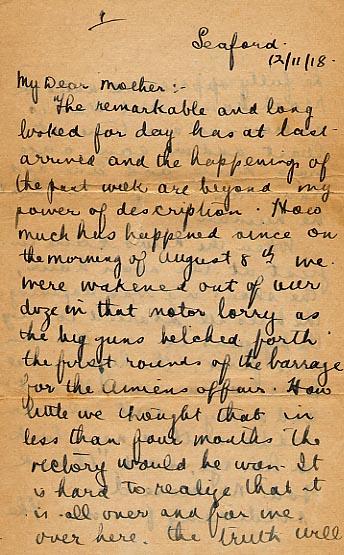 1
Seaford.
12/11/18.
My Dear Mother:-
The remarkable and long
looked for day has at last
arrived and the happenings of
the past week are beyond my
power of description. How
much has happened since on
the morning of August 8th we
were wakened out of our
doze in that motor lorry as
the big guns belched forth
the first rounds of the barrage
for the Amiens affair. How
little we thought that in
less than four months the
victory would be won. It
is hard to realize that it
is all over and for me
over here. the truth will